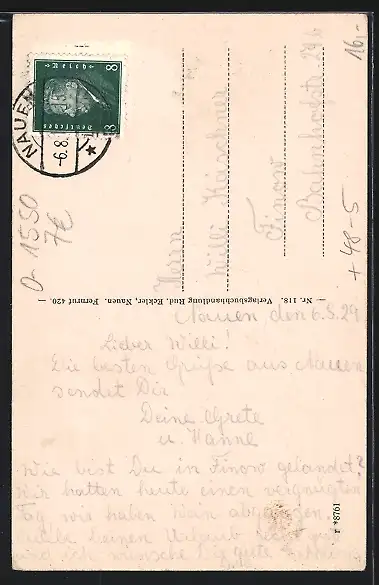 16,-
NAUEN
-6.8.
Deutsches Reich
8 8
O-1550
7€
+48-5
Herrn
Willi Kirschner
Finow
Bahnhofstr.
— Nr. 118. Verlagsbuchhandlung Rud. Eckler, Nauen. Fernruf 420. —
Nauen, den 6.8.29
Lieber Willi!
Die besten Grüße aus Nauen
sendet Dir
Deine Grete
u. Hanne
Wie bist Du in Finow gelandet?
Wir hatten heute einen vergnügten
Tag, wir haben Wein
Deinen Urlaub
und ich wünsche Dir gute
r *8761